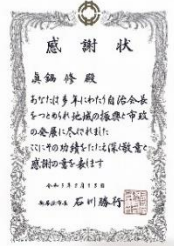 感謝状
眞鍋 修 殿
あなたは多年にわたり自治会長
をつとめられ地域の振興と市政
の発展に尽くされました
ここにその功績をたたえ深く敬意と
感謝の意を表します
令和3年5月15日
石川勝行